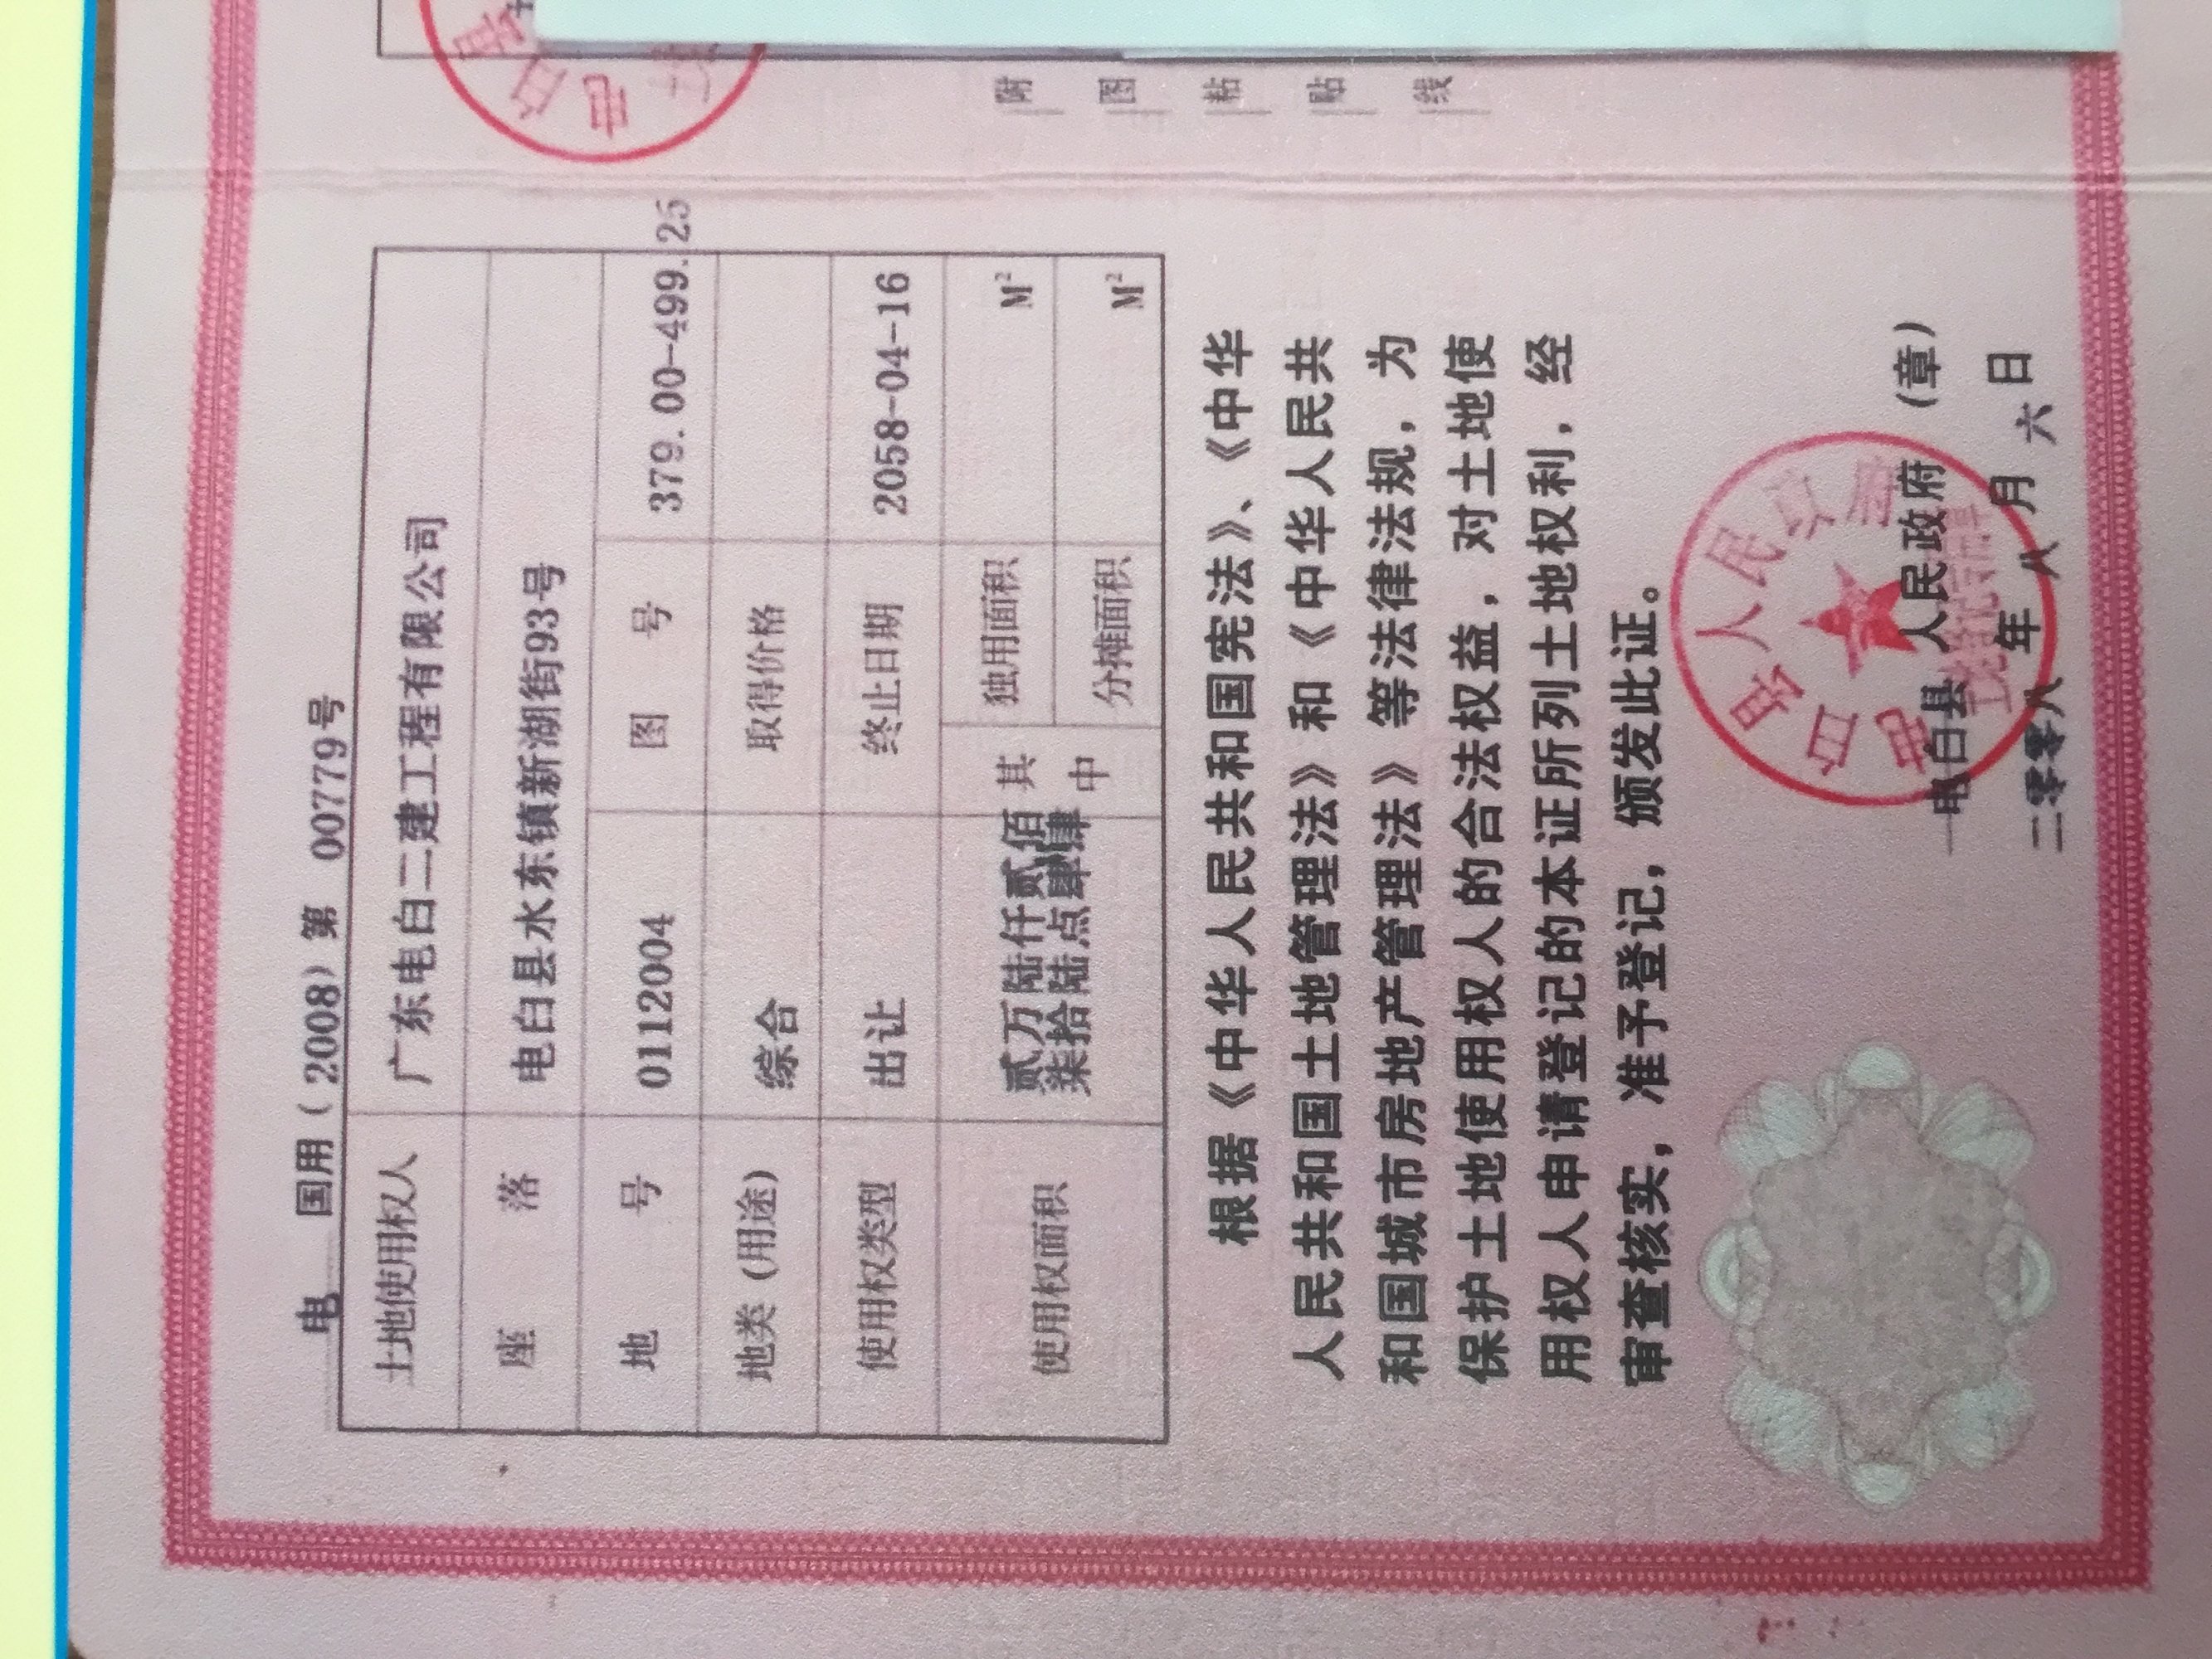 电 国用(2008)第 00779号
土地使用权人 广东电白二建工程有限公司
座 落 电白县水东镇新湖街93号
地 号 0112004 图 号 379.00-499.25
地类(用途) 综合 取得价格
使用权类型 出让 终止日期 2058-04-16
使用权面积 贰万陆仟贰佰柒拾陆点肆肆 其中 独用面积 M²
分摊面积 M²
根据《中华人民共和国宪法》、《中华
人民共和国土地管理法》和《中华人民共
和国城市房地产管理法》等法律法规，为
保护土地使用权人的合法权益，对土地使
用权人申请登记的本证所列土地权利，经
审查核实，准予登记，颁发此证。
电白县人民政府
电白县 人民政府 (章)
二零零八 年 八 月 六 日
附图粘贴线
电白县